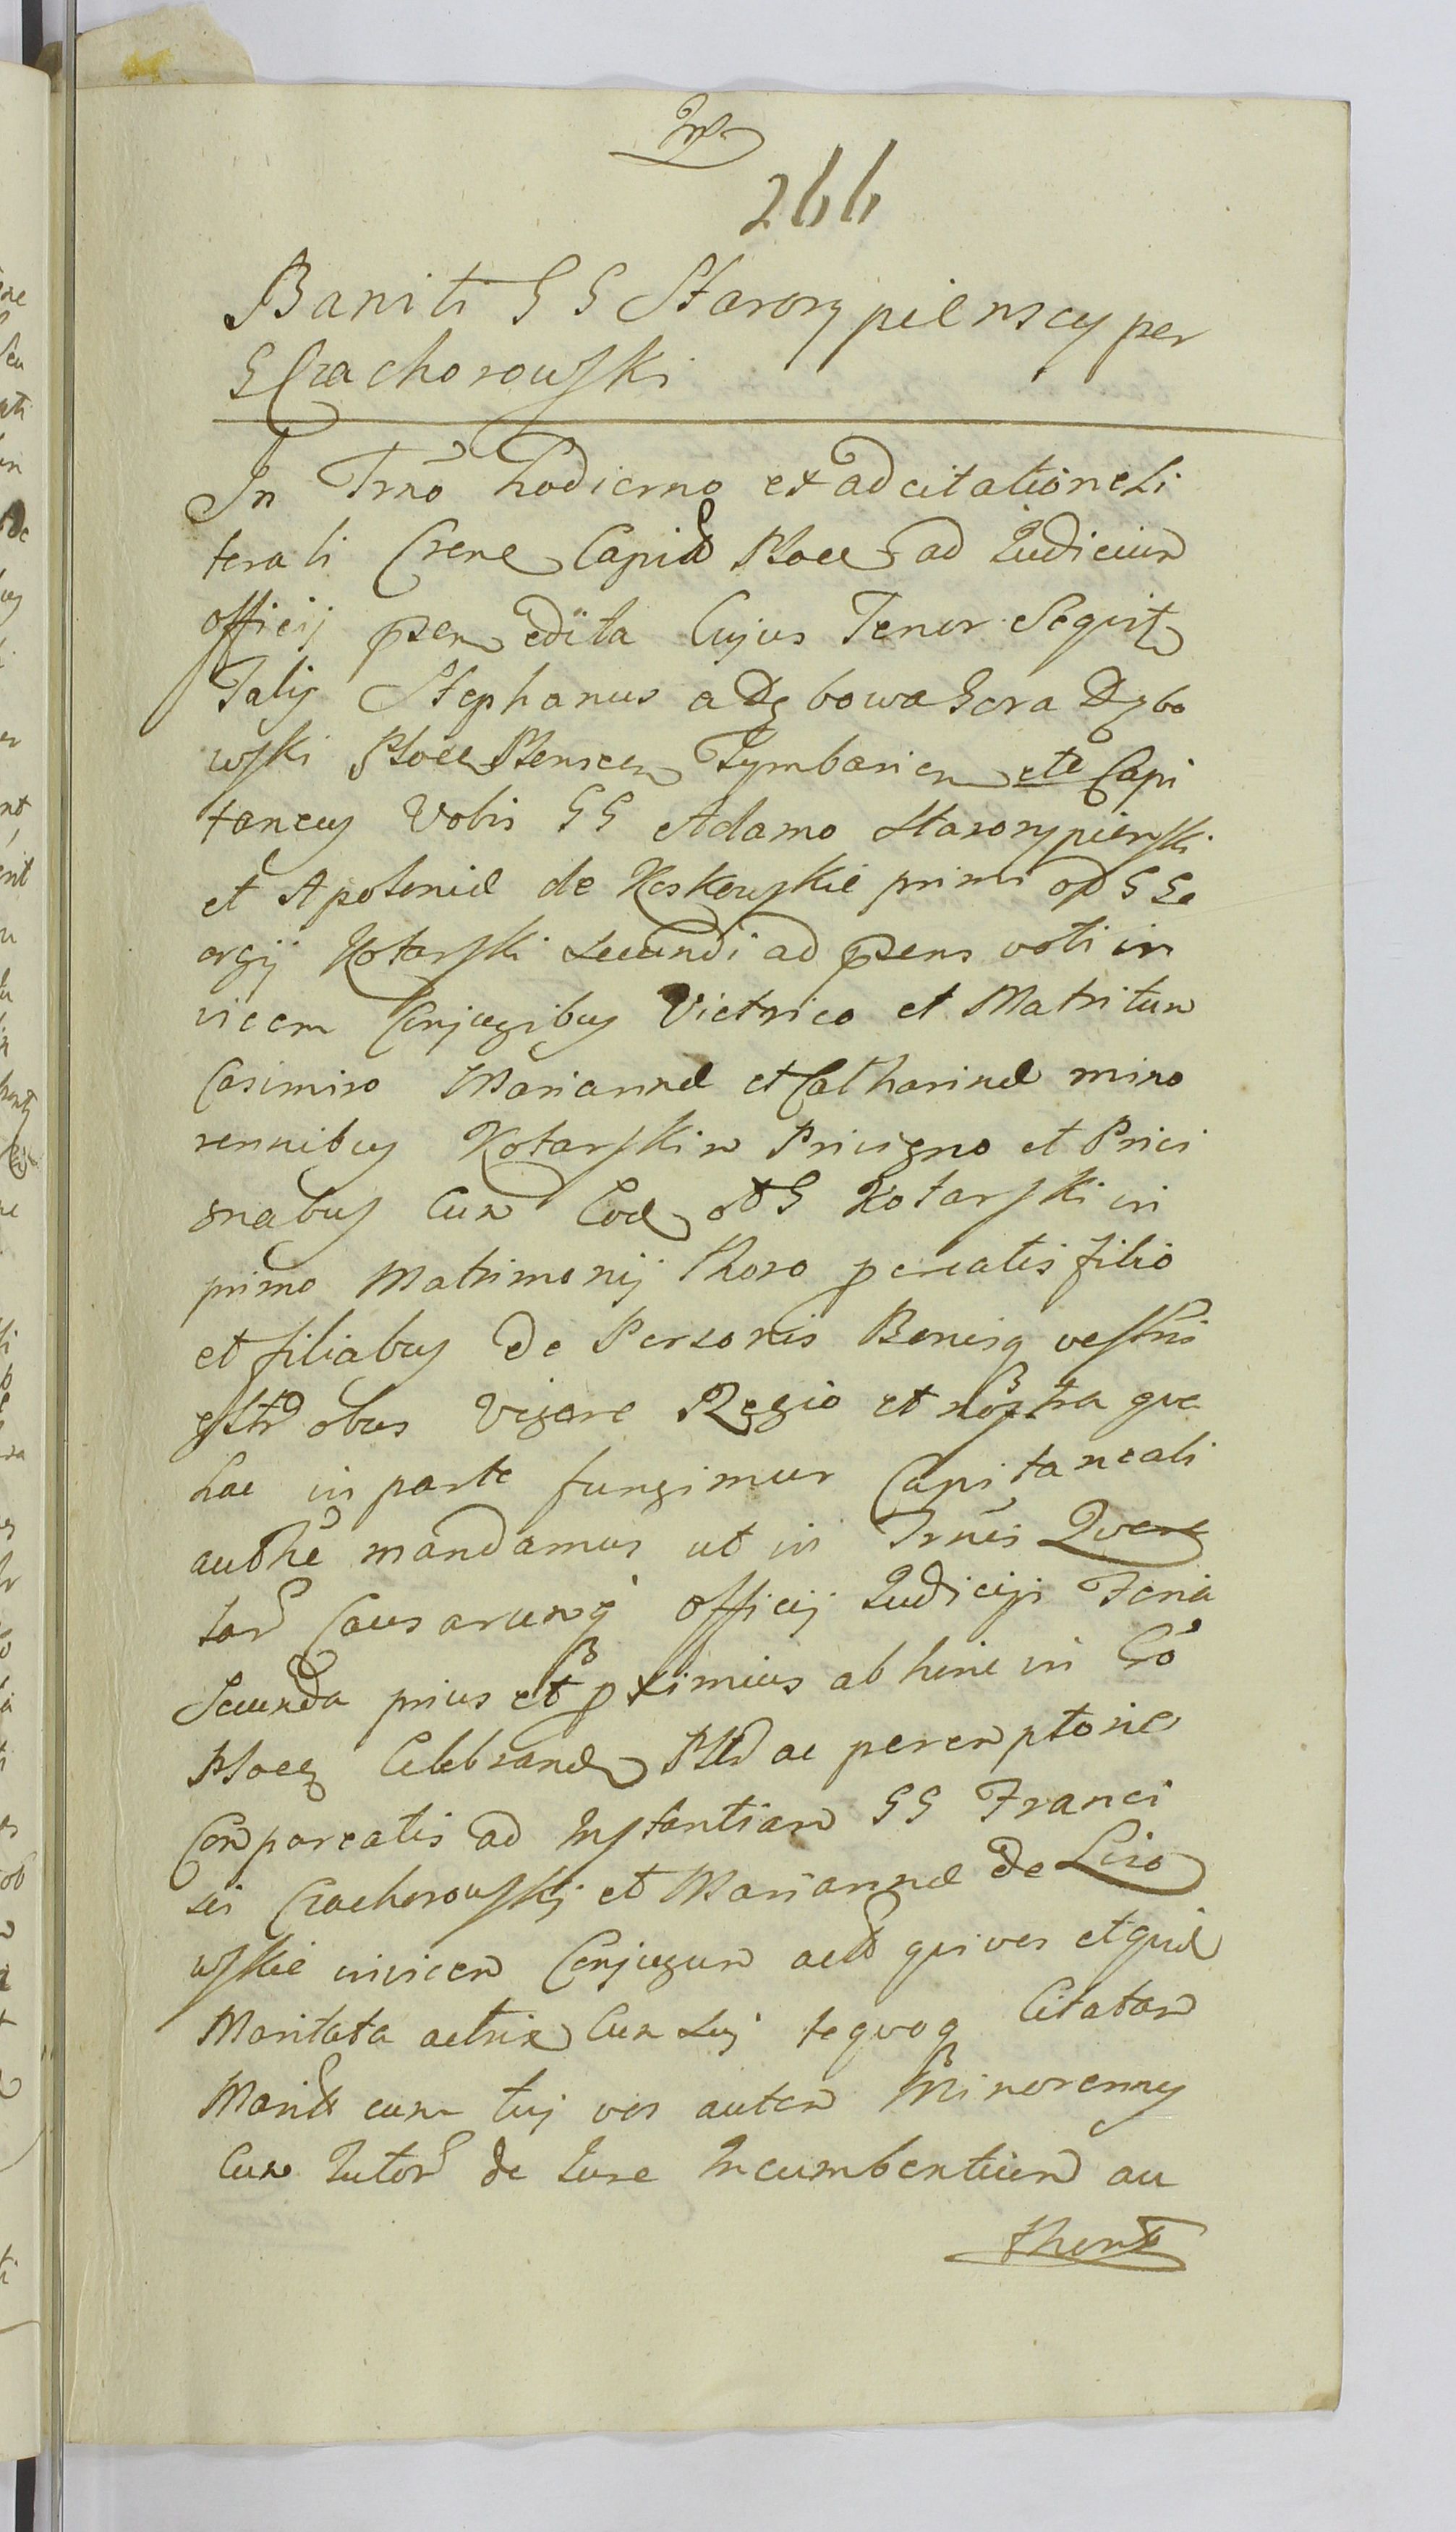 266
Baniti G G Starorypienscy per
G Czachorowski
In Trno hodierno ex ad citatione Li
terali Crene Capitli Ploce ad Judicium
officij psen edita Cujus Tenor Sequit
Talis Stephanus a Dębowa Gora Dębo
wski Ploce Plenscen Tymbarien etc Capi
taneus Vobis G G Adamo Starorypienski
et Apolonie de Koskowskie primi op G Ge
orgij Kotarski secundi ad psens voti in
vicem Conjugibus Victrico et Matri tum
Casimiro Marianne et Catharine mino
rennibus Kotarskim Privigno et Privi
gnabus Cum Eod o G Kotarski in
primo Matrimonij thoro pcreatis filio
et filiabus de Personis Bonisq vestris
gltr obus Vigore Regio et nostra qua
hac in parte fungimur Capitaneali
authe mandamus ut in Trnis Quere
lar Causarumq officij Judicijs Feria
Secunda prius et pximius ab hinc in Cro
Ploce Celebrand Pltr ac peremptorie
Compareatis ad Instantiam G G Franci
sci Czachorowskj et Marianne de Liso
wskie invicem Conjugum act qui vos et quid
Maritata actrix Cum Suj te quoq Citatam
Marit cum tuj vos autem Minorennes
Cum Tutor de Jure Incumbentium au
thent